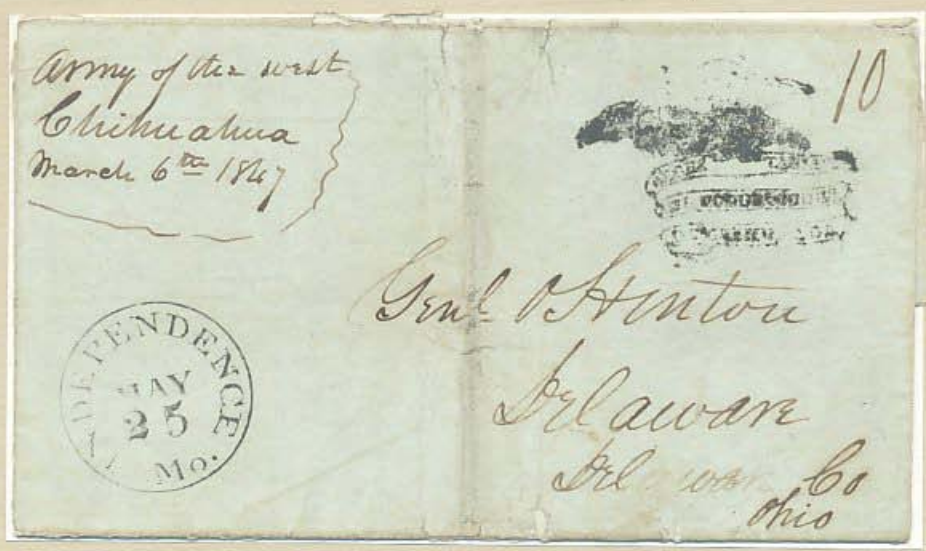 Army of the west
Chihuahua
March 6th 1847
10
Genl O Hinton
Delaware
Co
Ohio
INDEPENDENCE
MAY
25
Mo.